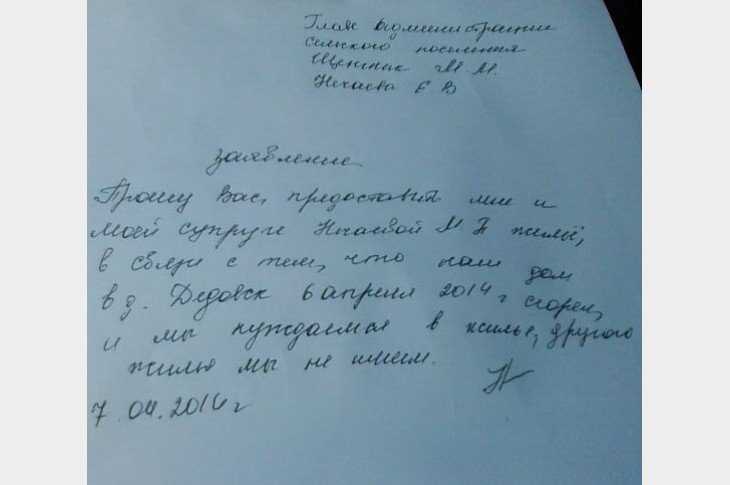 Главе администрации
сельского поселения
Щенник М.М.
Нечаева Е В
заявление
Прошу Вас, предоставить мне и
моей супруге Нечаевой М Б жильё,
в связи с тем, что наш дом
в д. Дедовск 6 апреля 2014 г сгорел,
и мы нуждаемся в жилье, другого
жилья мы не имеем.
7.04.2014 г